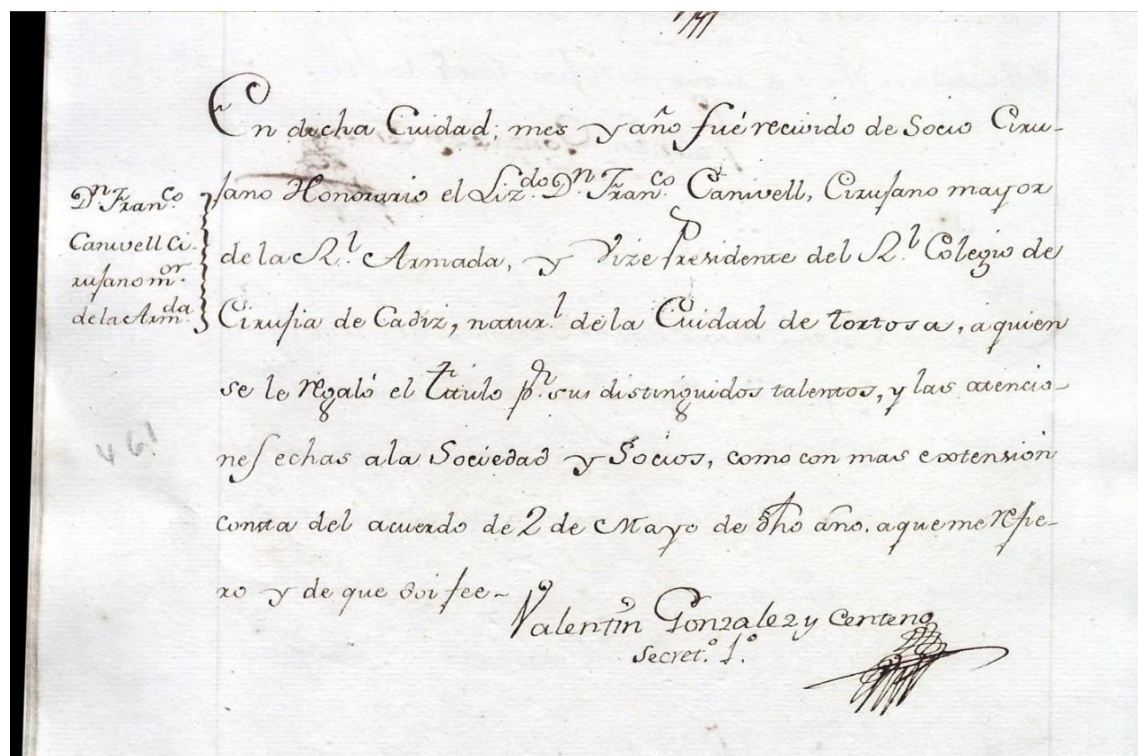 En dicha Cuidad; mes y año fué recivido de Socio Ciru-
jano Honorario el Liz.do D.n Fran.co Canivell, Cirujano mayor
de la R.l Armada, y Vize Presidente del R.l Colegio de
Cirujia de Cadiz, natur.l de la Cuidad de Tortosa, a quien
se le regaló el Titulo p.r sus distinguidos talentos, y las atencio-
nes echas a la Sociedad y Socios, como con mas extension
consta del acuerdo de 2 de Mayo de dho año. a que me refie-
ro y de que doi fee-
Valentin Gonzalez y Centeno
Secret.o 1.o
D.n Fran.co
Canivell Ci-
rujano m.or
de la Arm.da
46!